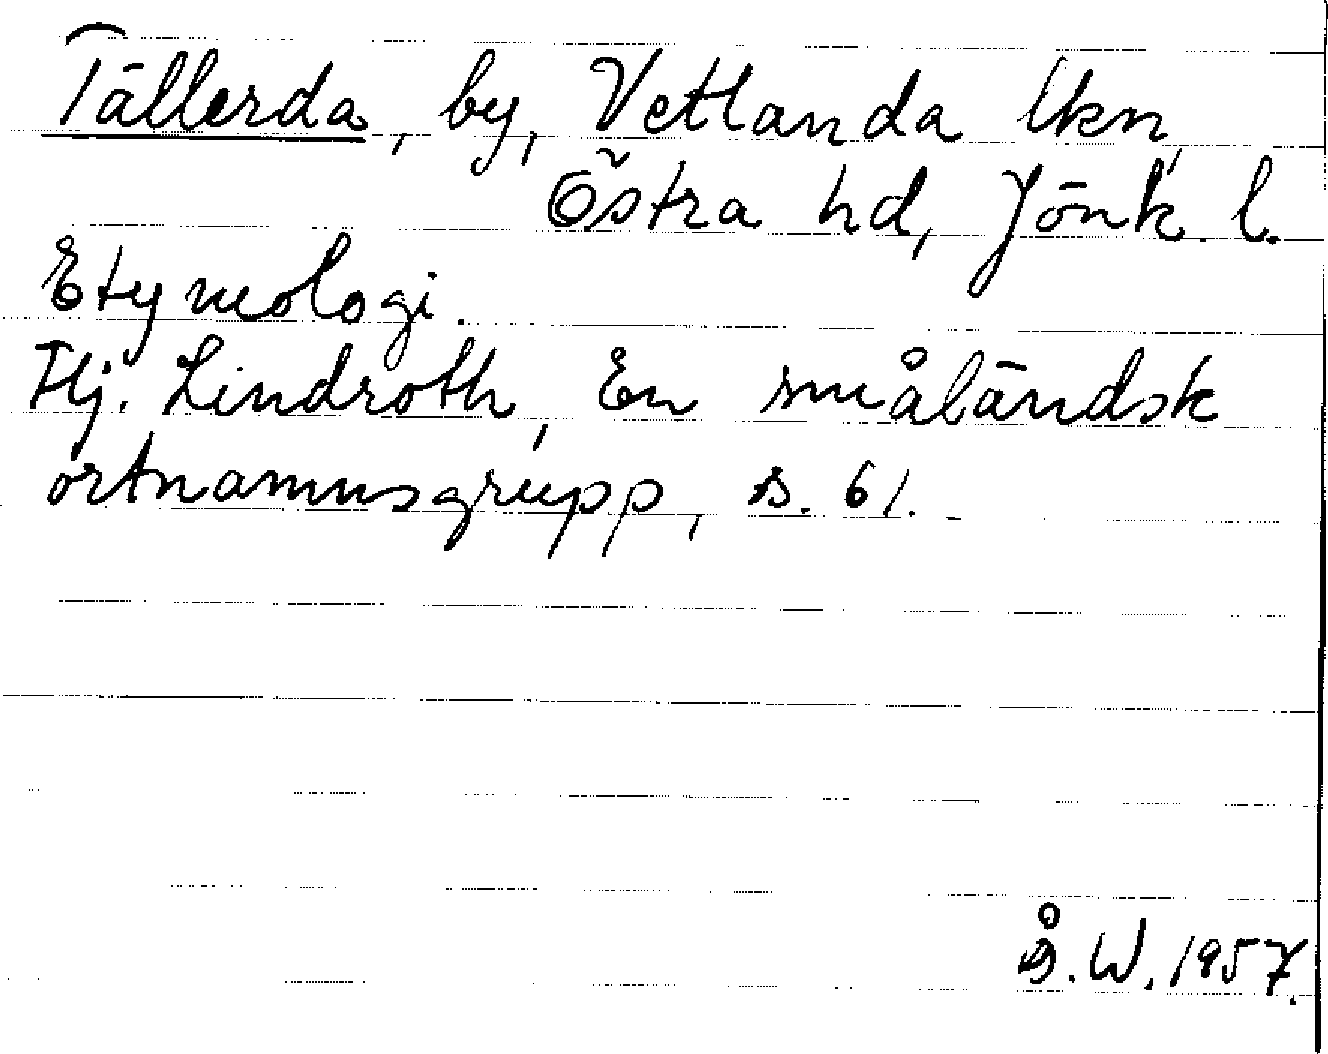 Tällerda, by, Vetlanda lkn,
Östra hd, Jönk. l.
Etymologi.
Hj. Lindroth, En småländsk
ortnamnsgrupp, s. 61.
Å.W. 1957.